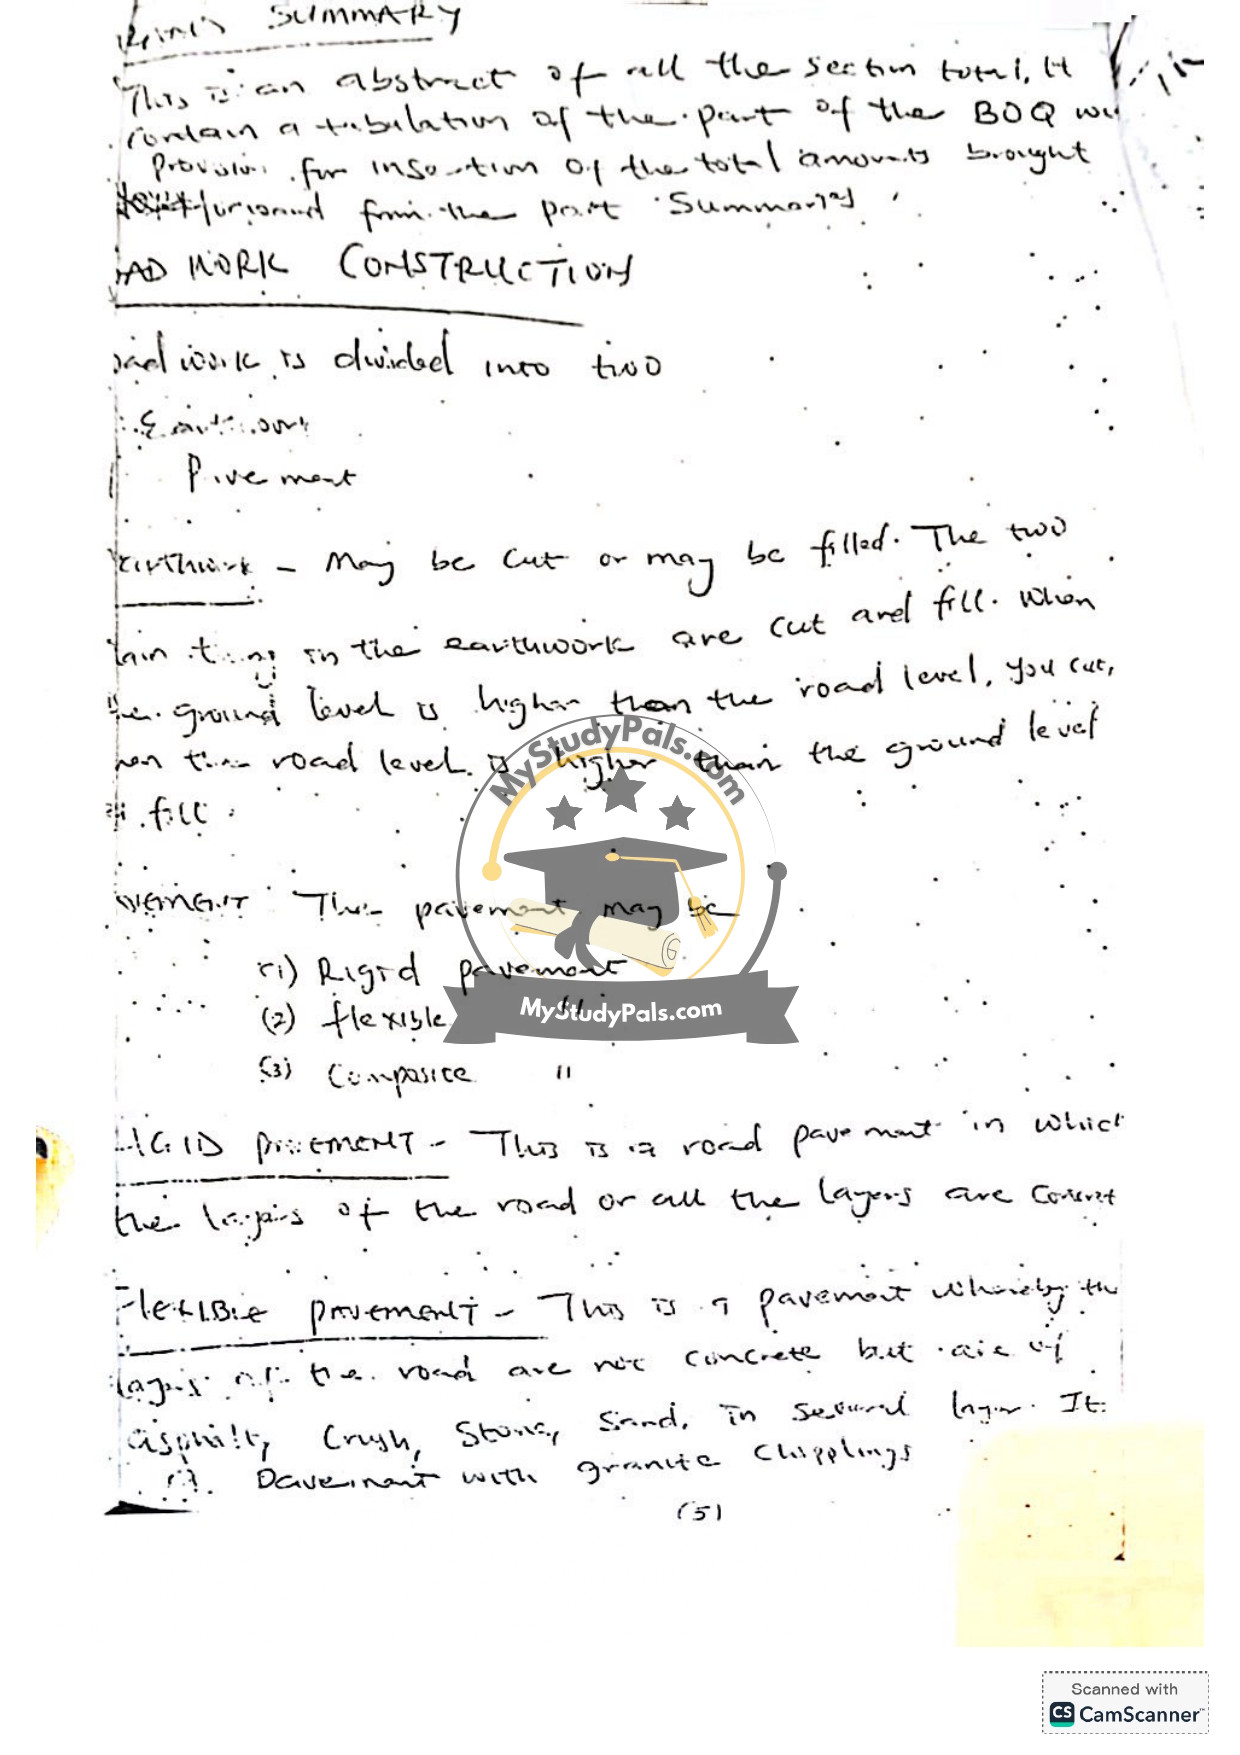 SUMMARY
This is an abstract of all the section total. It
contain a tabulation of the part of the BOQ
Provision for insertion of the total amounts brought
forward from the part Summary
AD WORK CONSTRUCTION
oad work is divided into two
Earthwork
Pavement
Earthwork - May be cut or may be filled. The two
ain thing in the earthwork are cut and fill. When
the ground level is higher than the road level, you cut,
hen the road level is higher than the ground level
fill.
VEMENT The pavement may be
(1) Rigid pavement
(2) flexible "
(3) Composite "
IGID PAVEMENT - This is a road pavement in which
the layers of the road or all the layers are concret
FLEXIBLE PAVEMENT - This is a pavement whereby the
layers of the road are not concrete but are of
asphalt, Crush, Stone, Sand, in several layer. It
Pavement with granite Chipplings
(5)
MyStudyPals.com
MyStudyPals.com
Scanned with
CS CamScanner